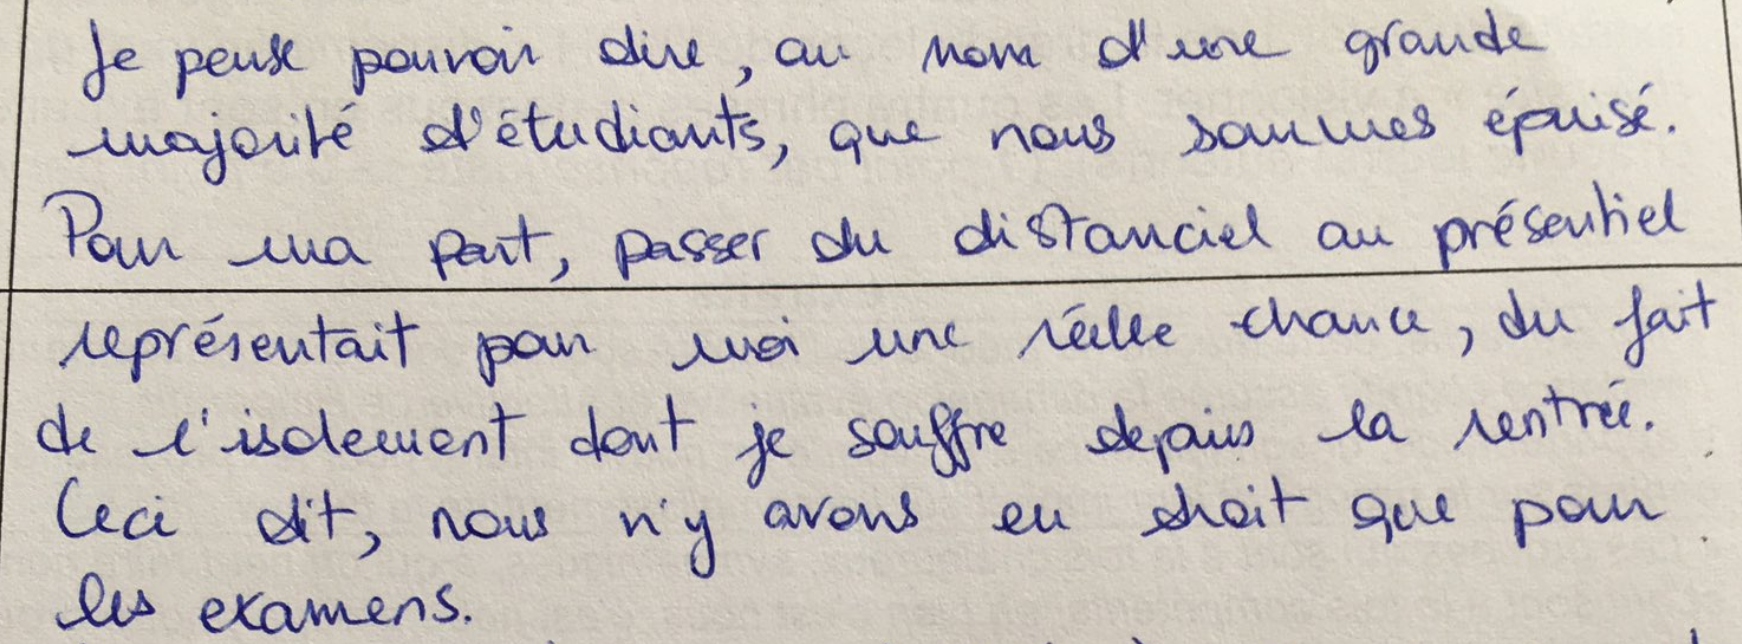 Je pense pouvoir dire, au nom d'une grande
majorité d'étudiants, que nous sommes épuisé.
Pour ma part, passer du distanciel au présentiel
représentait pour moi une réelle chance, du fait
de l'isolement dont je souffre depuis la rentrée.
Ceci dit, nous n'y avons eu droit que pour
les examens.